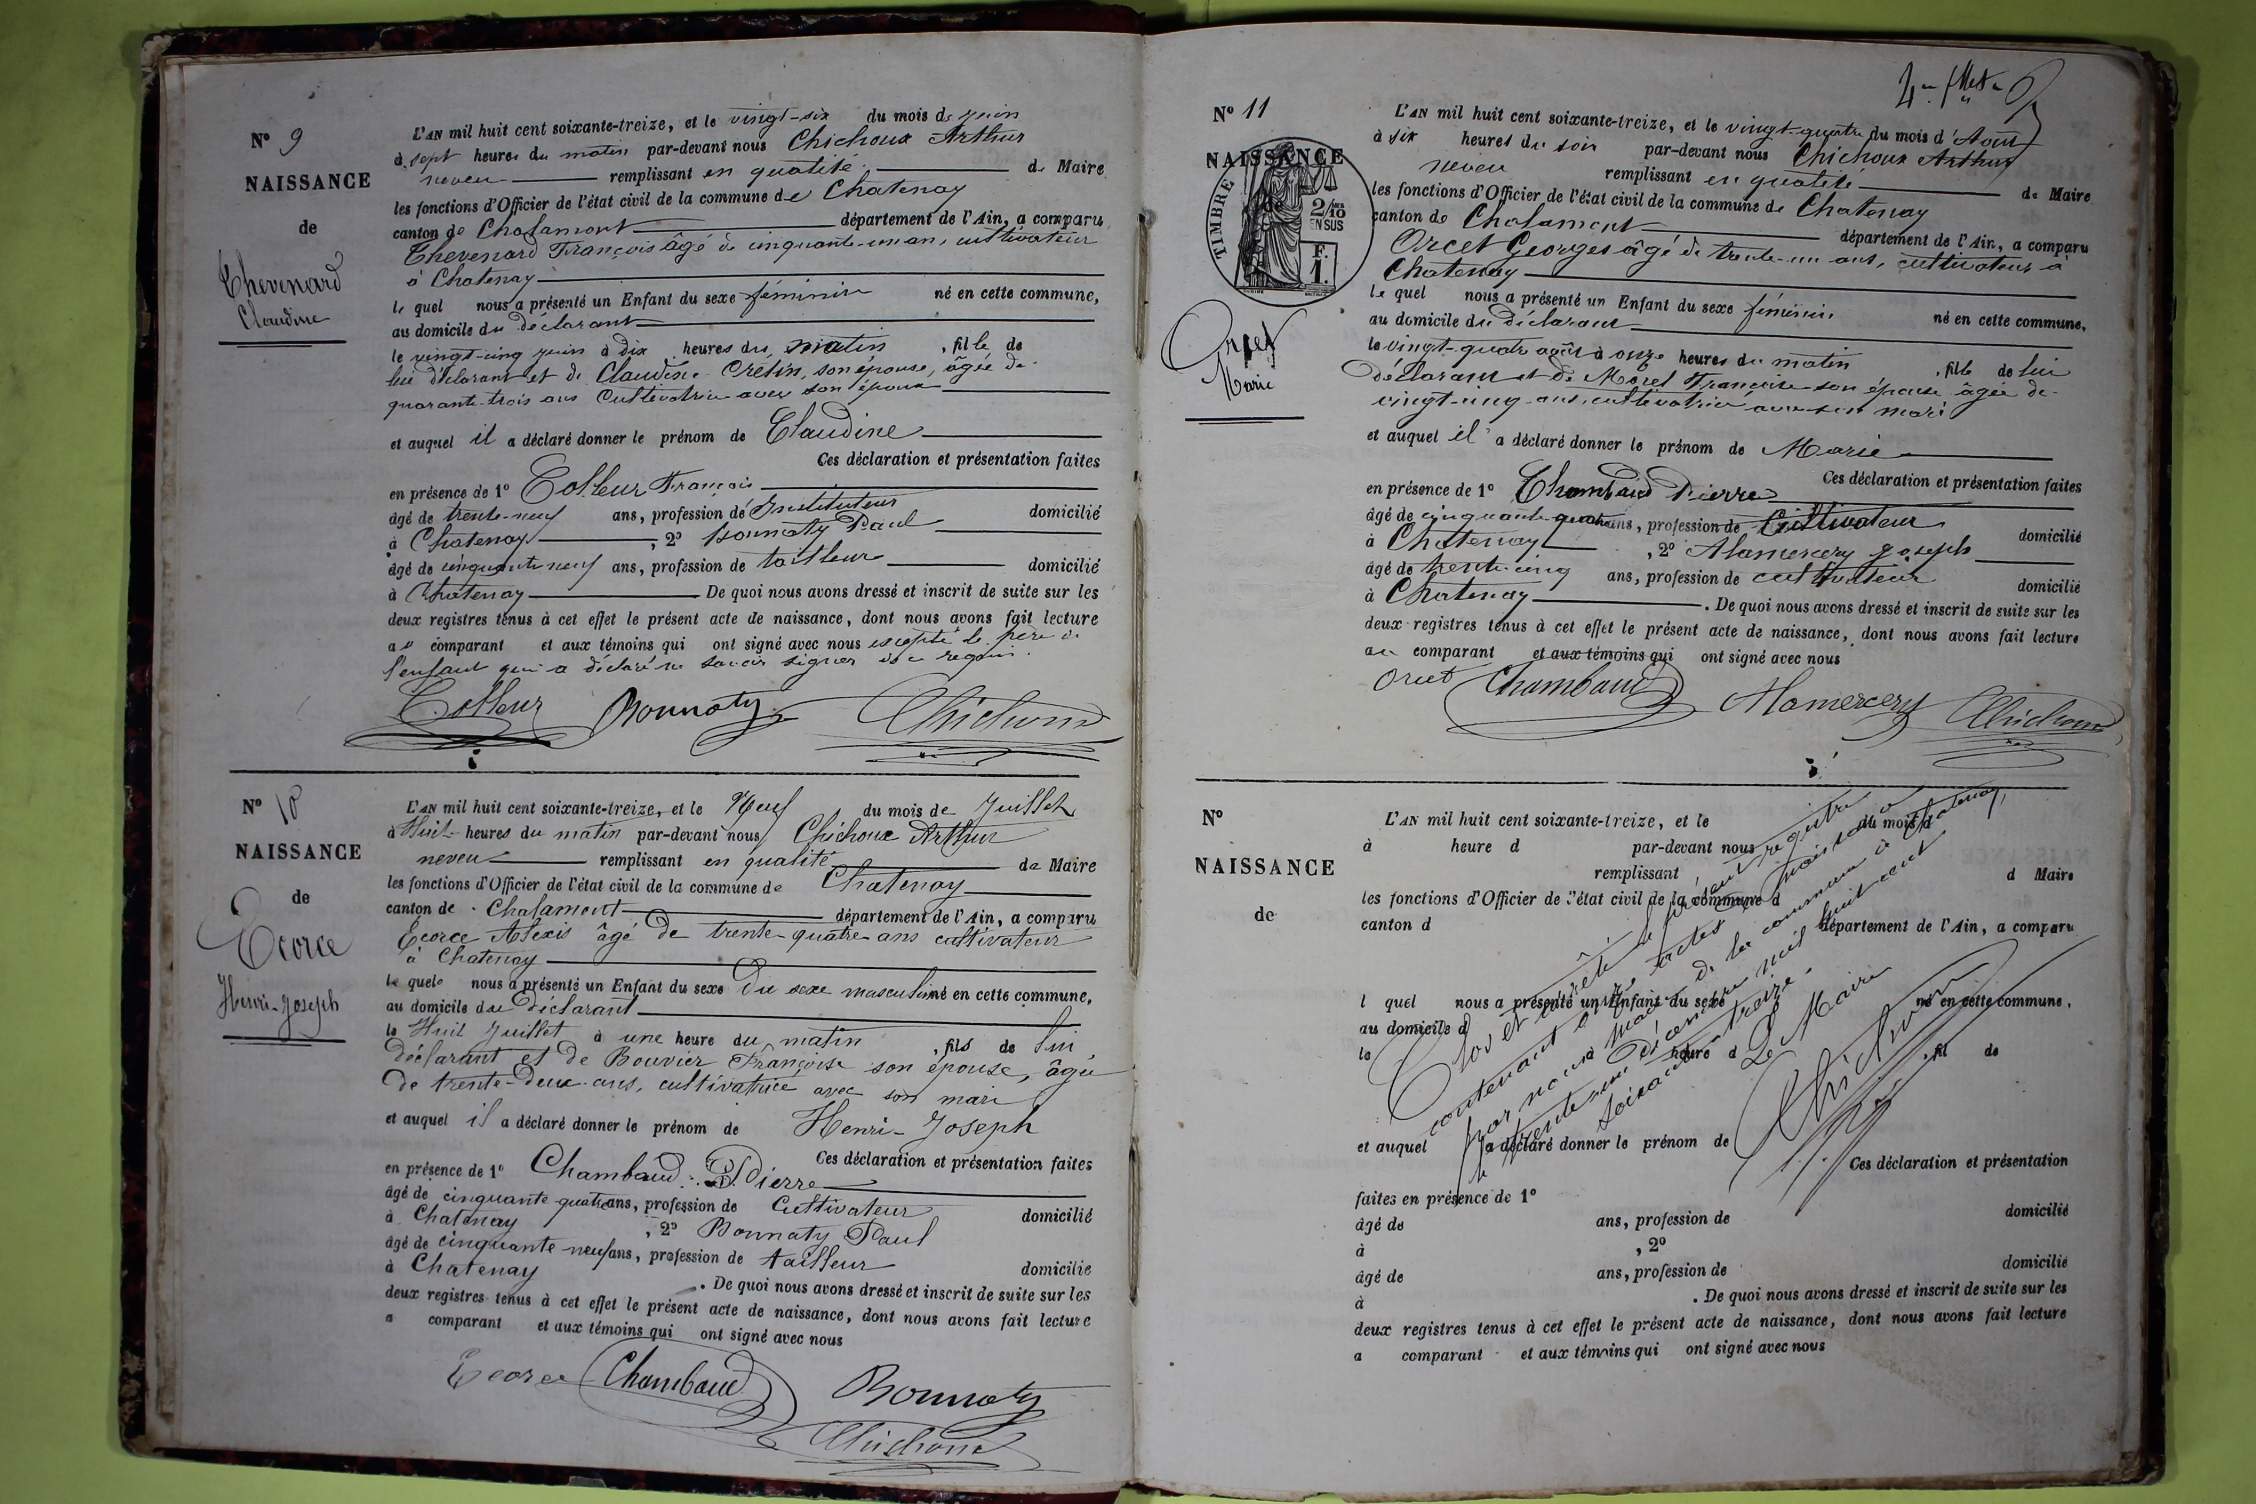 N° 9
NAISSANCE
de
Thevenard
Claudine
L'AN mil huit cent soixante-treize, et le vingt-six du mois de juin
à sept heures du matin par-devant nous Chichoux Arthur
neveu remplissant en qualité de Maire
les fonctions d'Officier de l'état civil de la commune de Chatenay
canton de Chalamont département de l'Ain, a comparu
Thevenard François âgé de cinquante-un an, cultivateur
à Chatenay
le quel nous a présenté un Enfant du sexe féminin né en cette commune,
au domicile du déclarant
le vingt-cinq juin à dix heures du matin , fille de
lui déclarant et de Claudine Crétin, son épouse, âgée de
quarante-trois ans Cultivatrice avec son époux
et auquel il a déclaré donner le prénom de Claudine
Ces déclaration et présentation faites
en présence de 1° Colleur François
âgé de trente-neuf ans, profession de Instituteur domicilié
à Chatenay , 2° Bonnaty Paul
âgé de cinquante neuf ans, profession de tailleur domicilié
à Chatenay De quoi nous avons dressé et inscrit de suite sur les
deux registres tenus à cet effet le présent acte de naissance, dont nous avons fait lecture
au comparant et aux témoins qui ont signé avec nous excepté le père de
l'enfant qui a déclaré ne savoir signer de ce requis.
Colleur Bonnaty Chichoux
N° 10
NAISSANCE
de
Ecorce
Henri-Joseph
L'AN mil huit cent soixante-treize, et le Neuf du mois de Juillet
à Huit heures du matin par-devant nous Chichoux Arthur
neveu remplissant en qualité de Maire
les fonctions d'Officier de l'état civil de la commune de Chatenay
canton de Chalamont département de l'Ain, a comparu
Ecorce Alexis âgé de trente-quatre-ans cultivateur
à Chatenay
le quel nous a présenté un Enfant du sexe du sexe masculin né en cette commune,
au domicile du déclarant
le Huit Juillet à une heure du matin , fils de lui
déclarant et de Bouvier Françoise son épouse, âgée
de trente-deux-ans, cultivatrice avec son mari
et auquel il a déclaré donner le prénom de Henri-Joseph
Ces déclaration et présentation faites
en présence de 1° Chambaud Pierre
âgé de cinquante quatre ans, profession de Cultivateur domicilié
à Chatenay , 2° Bonnaty Paul
âgé de cinquante neuf ans, profession de tailleur domicilié
à Chatenay . De quoi nous avons dressé et inscrit de suite sur les
deux registres tenus à cet effet le présent acte de naissance, dont nous avons fait lecture
a comparant et aux témoins qui ont signé avec nous
Ecorce Chambaud Bonnaty
Chichoux
N° 11
NAISSANCE
de
TIMBRE
2/10
EN SUS
F.
1.
Orcet
Marie
L'AN mil huit cent soixante-treize, et le vingt-quatre du mois d'Août
à six heures du soir par-devant nous Chichoux Arthur
neveu remplissant en qualité de Maire
les fonctions d'Officier de l'état civil de la commune de Chatenay
canton de Chalamont département de l'Ain, a comparu
Orcet Georges âgé de trente-un ans, cultivateur à
Chatenay
le quel nous a présenté un Enfant du sexe féminin né en cette commune,
au domicile du déclarant
le vingt-quatre août à onze heures du matin , fille de lui
déclarant et de Morel Françoise son épouse âgée de
vingt-cinq-ans, cultivatrice avec son mari
et auquel il a déclaré donner le prénom de Marie
Ces déclaration et présentation faites
en présence de 1° Chambaud Pierre
âgé de cinquante-quatre ans, profession de Cultivateur domicilié
à Chatenay , 2° Alamercery Joseph
âgé de trente-cinq ans, profession de cultivateur domicilié
à Chatenay . De quoi nous avons dressé et inscrit de suite sur les
deux registres tenus à cet effet le présent acte de naissance, dont nous avons fait lecture
au comparant et aux témoins qui ont signé avec nous
Orcet Chambaud Alamercery Chichoux
N°
NAISSANCE
de
L'AN mil huit cent soixante-treize, et le du mois d
à heure d par-devant nous
remplissant d Maire
les fonctions d'Officier de l'état civil de la commune d
canton d département de l'Ain, a comparu
l quel nous a présenté un Enfant du sexe né en cette commune,
au domicile d
le à heure d , fil de
et auquel a déclaré donner le prénom de
Ces déclaration et présentation
faites en présence de 1°
âgé de ans, profession de domicilié
à , 2°
âgé de ans, profession de domicilié
à . De quoi nous avons dressé et inscrit de suite sur les
deux registres tenus à cet effet le présent acte de naissance, dont nous avons fait lecture
a comparant et aux témoins qui ont signé avec nous
Clos et arrêté le présent registre
contenant onze actes de naissance
par nous Maire de la commune de Chatenay,
le trente-un Décembre mil huit cent
soixante-treize.
Le Maire
Chichoux